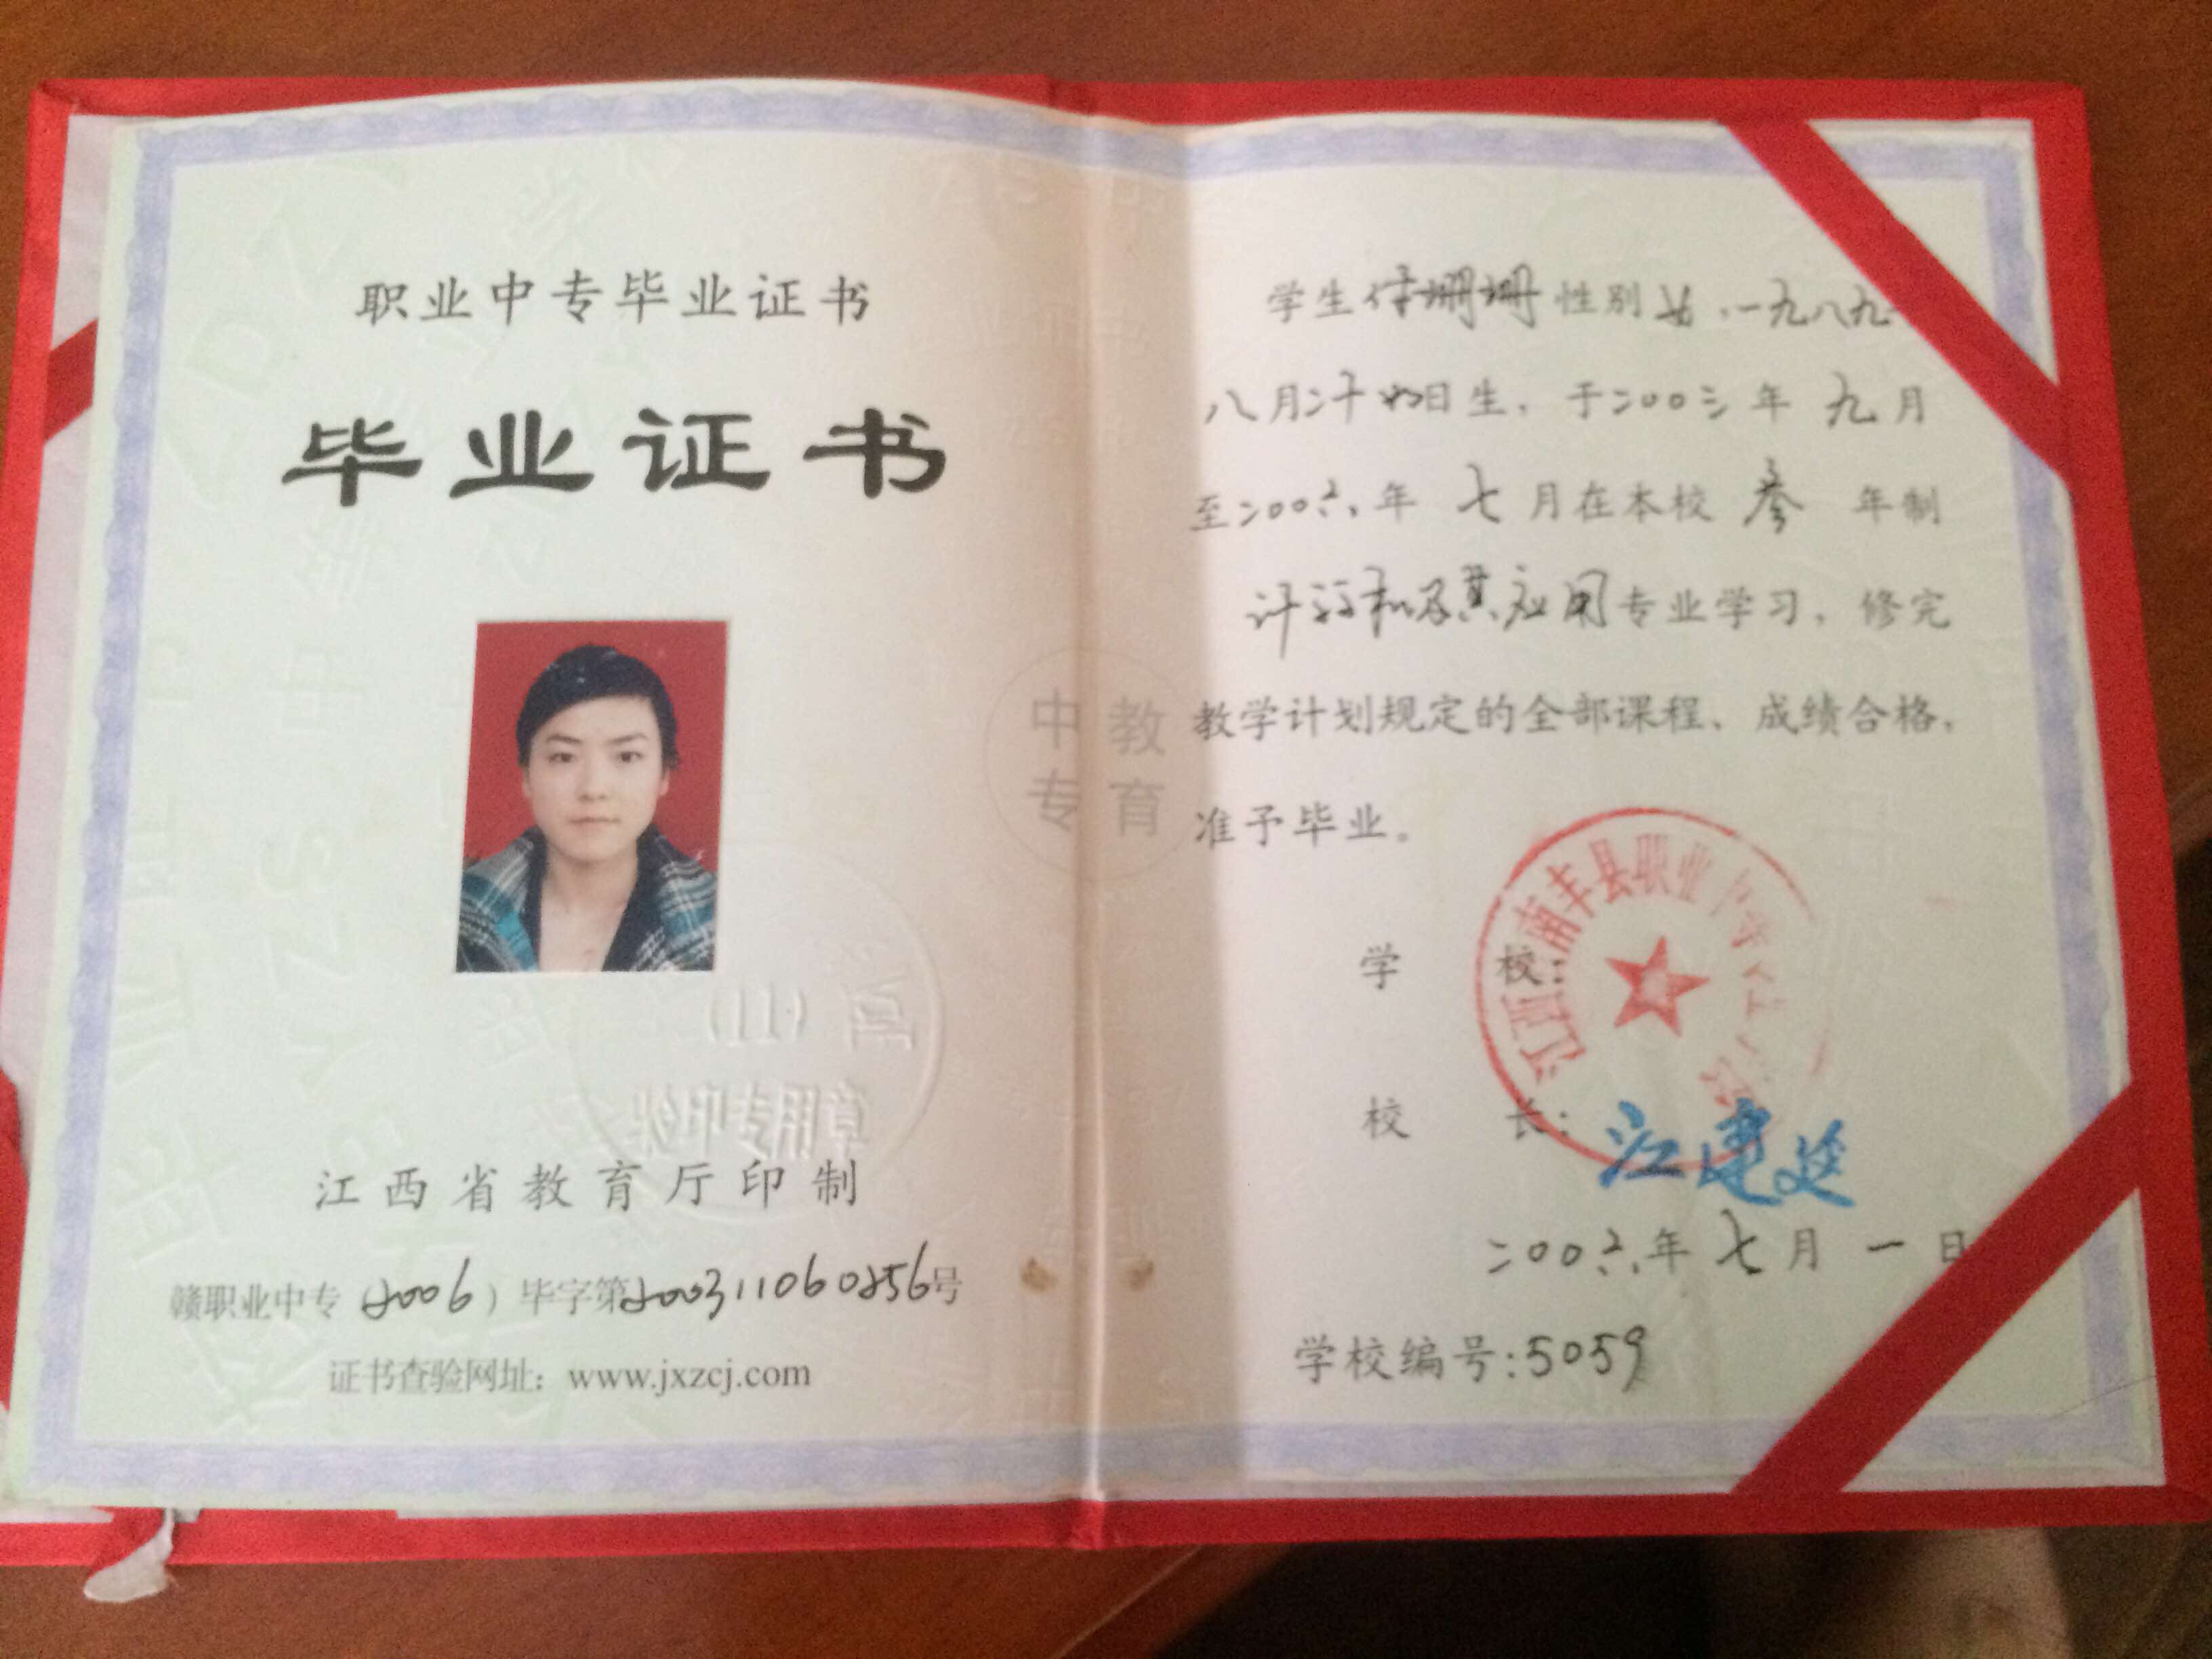 职业中专毕业证书
毕业证书
江西省教育厅印制
赣职业中专（2006）毕字第200311060256号
证书查验网址：www.jxzcj.com
中教
专育
学生付珊珊性别女，一九八九
八月二十四日生，于二00三年九月
至二00六年七月在本校叁年制
计算机及其应用专业学习，修完
教学计划规定的全部课程、成绩合格，
准予毕业。
学校：
江西南丰县职业
校长：
江建
二00六年七月一日
学校编号：5059